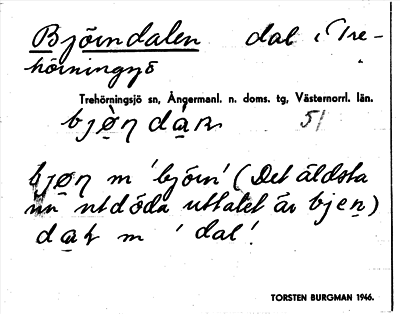 Björndalen dal i Tre-
hörningsjö
Trehörningsjö sn, Ångermanl. n. doms. tg, Västernorrl. län.
bjø̱ṇ da̱ɽn 51
bjø̱ṇ m 'björn' (Det äldsta
nu utdöda uttalet är bjeṇ)
da̱ɽ m 'dal'.
TORSTEN BURGMAN 1946.